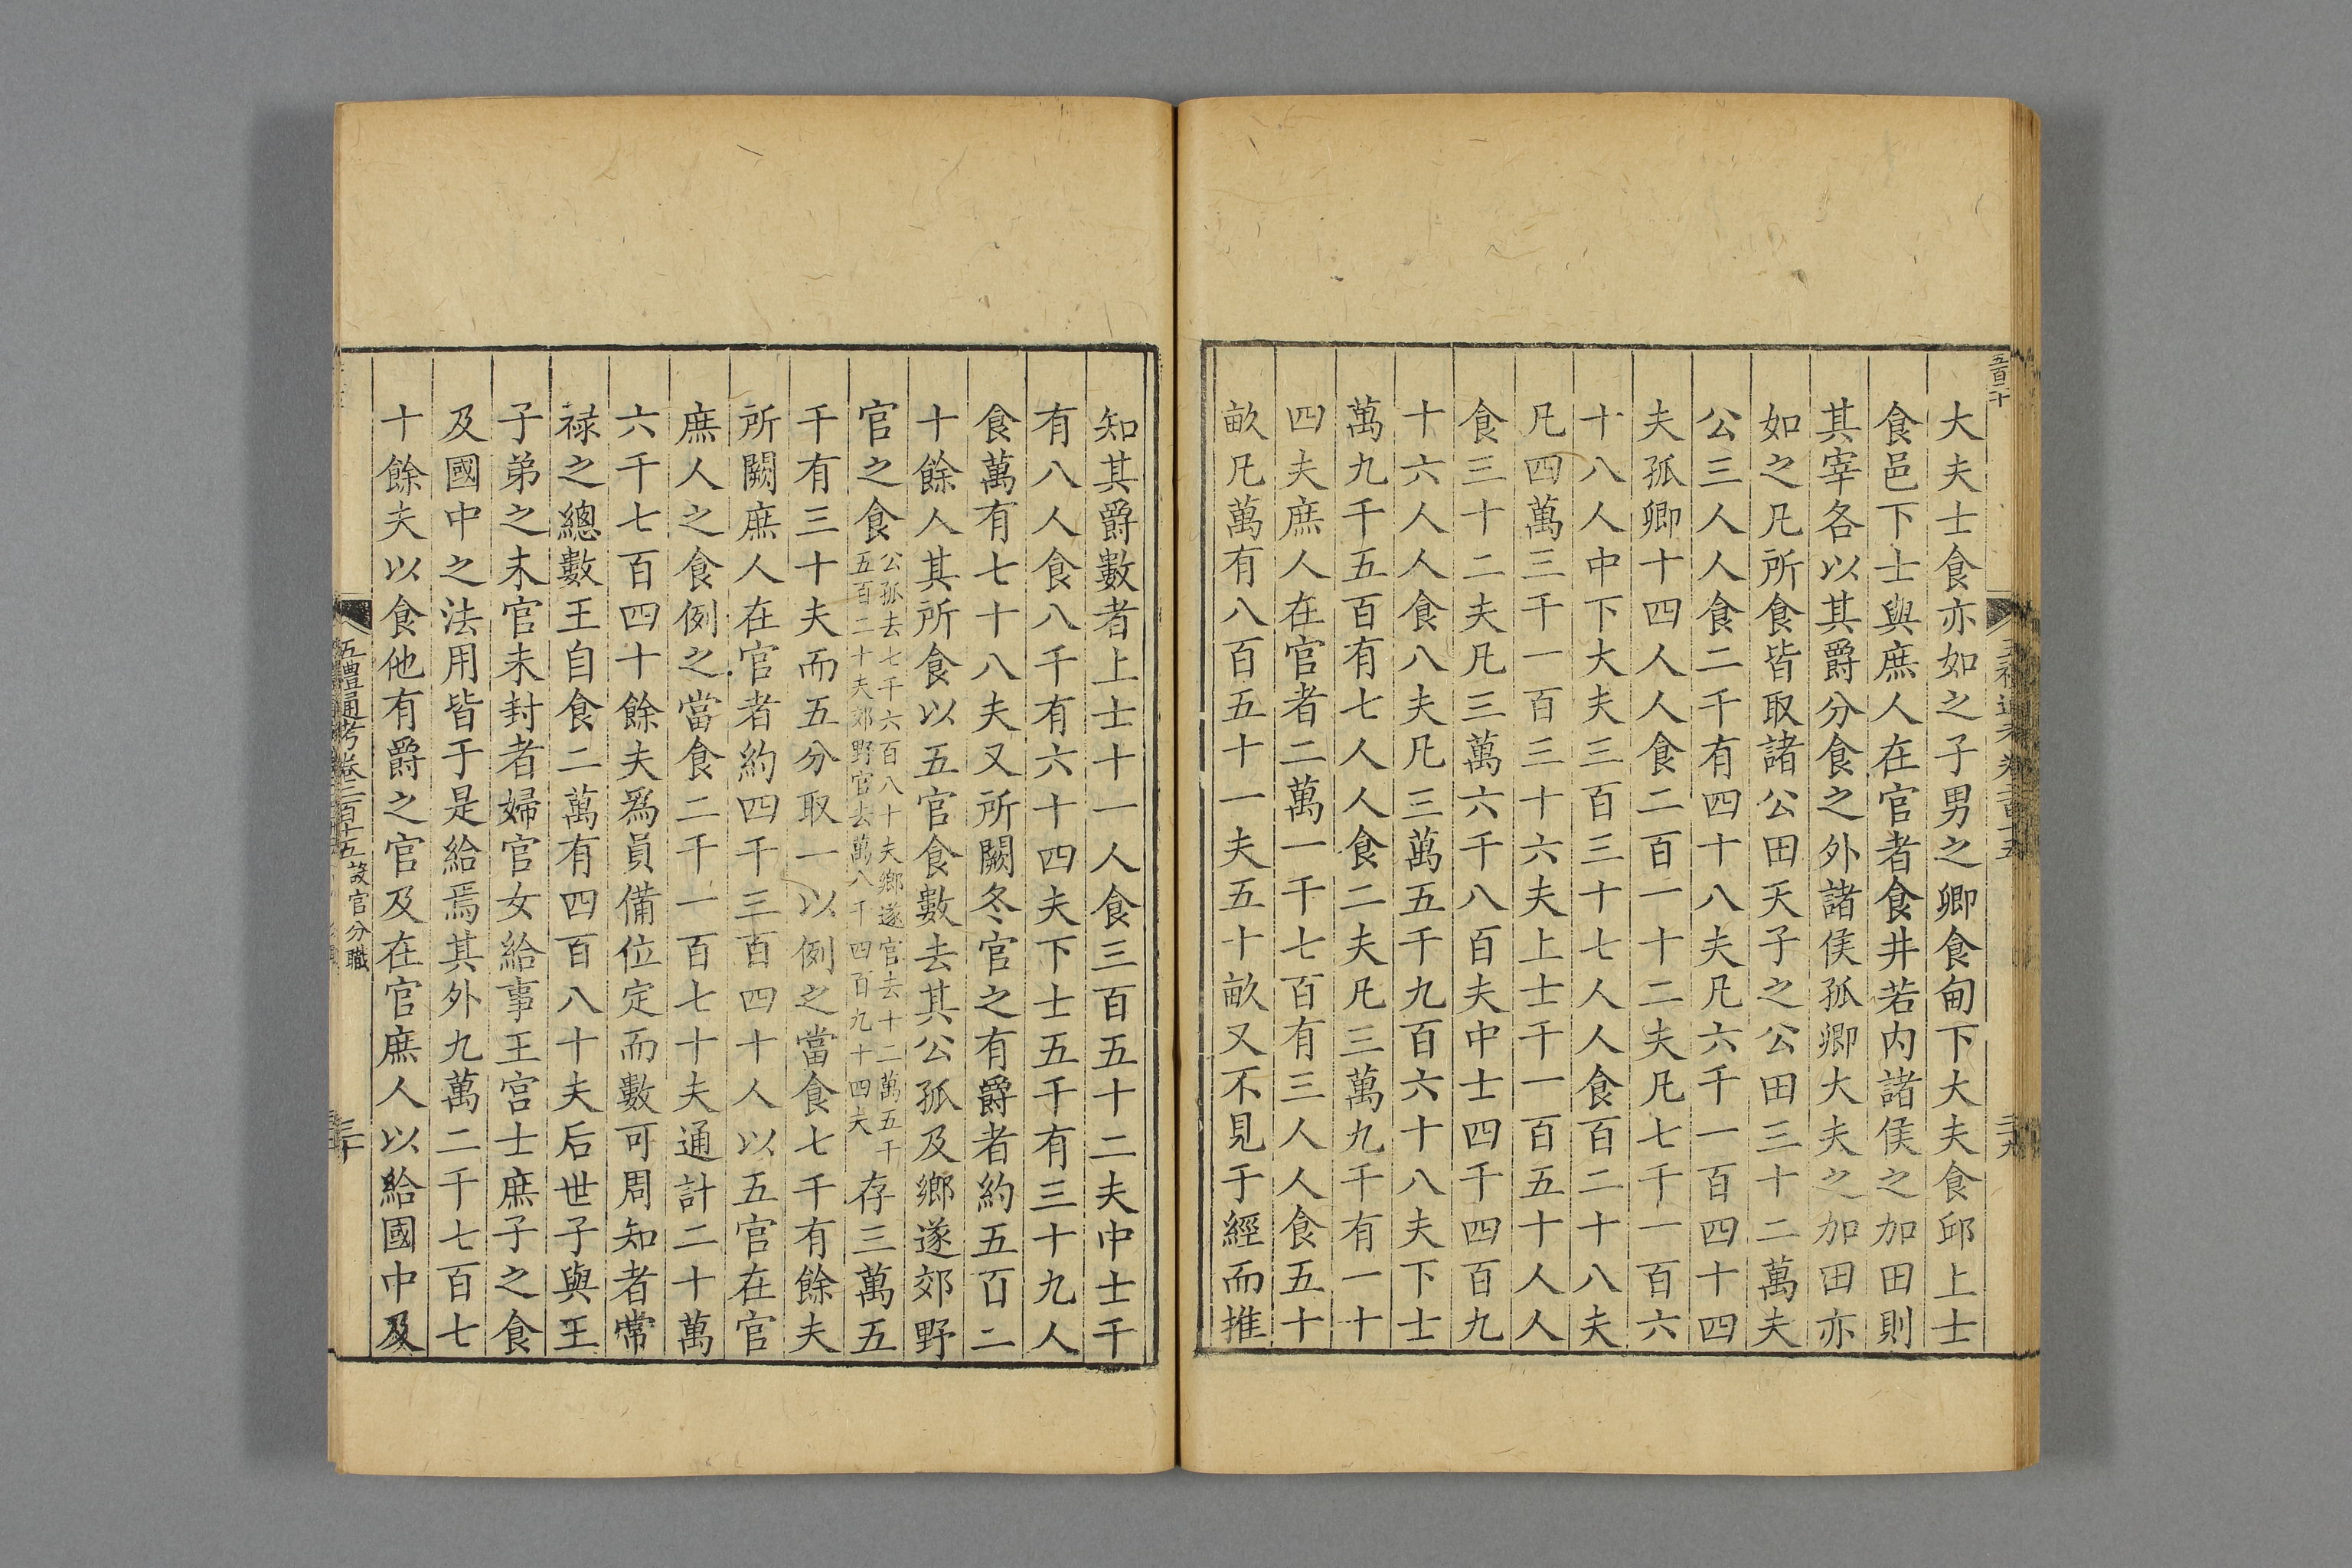 五百二十
大夫士食亦如之子男之卿食甸下大夫食邱上士
食邑下士與庶人在官者食井若内諸侯之加田則
其宰各以其爵分食之外諸侯孤卿大夫之加田亦
如之凡所食皆取諸公田天子之公田三十二萬夫
公三人人食二千有四十八夫凡六千一百四十四
夫孤卿十四人人食二百一十二夫凡七千一百六
十八人中下大夫三百三十七人人食百二十八夫
凡四萬三千一百三十六夫上士千一百五十人人
食三十二夫凡三萬六千八百夫中士四千四百九
十六人人食八夫凡三萬五千九百六十八夫下士
萬九千五百有七人人食二夫凡三萬九千有一十
四夫庶人在官者二萬一千七百有三人人食五十
畝凡萬有八百五十一夫五十畝又不見于經而推
知其爵數者上士十一人食三百五十二夫中士千
有八人食八千有六十四夫下士五千有三十九人
食萬有七十八夫又所闕冬官之有爵者約五百二
十餘人其所食以五官食數去其公孤及鄉遂郊野
官之食公孤去七千六百八十夫鄉遂官去十二萬五千
五百二十夫郊野官去萬八千四百九十四夫存三萬五
千有三十夫而五分取一以例之當食七千有餘夫
所闕庶人在官者約四千三百四十人以五官在官
庶人之食例之當食二千一百七十夫通計二十萬
六千七百四十餘夫爲員備位定而數可周知者常
禄之總數王自食二萬有四百八十夫后世子與王
子弟之未官未封者婦官女給事王宫士庶子之食
及國中之法用皆于是給焉其外九萬二千七百七
十餘夫以食他有爵之官及在官庶人以給國中及
五禮通考卷二百十五 設官分職
三十